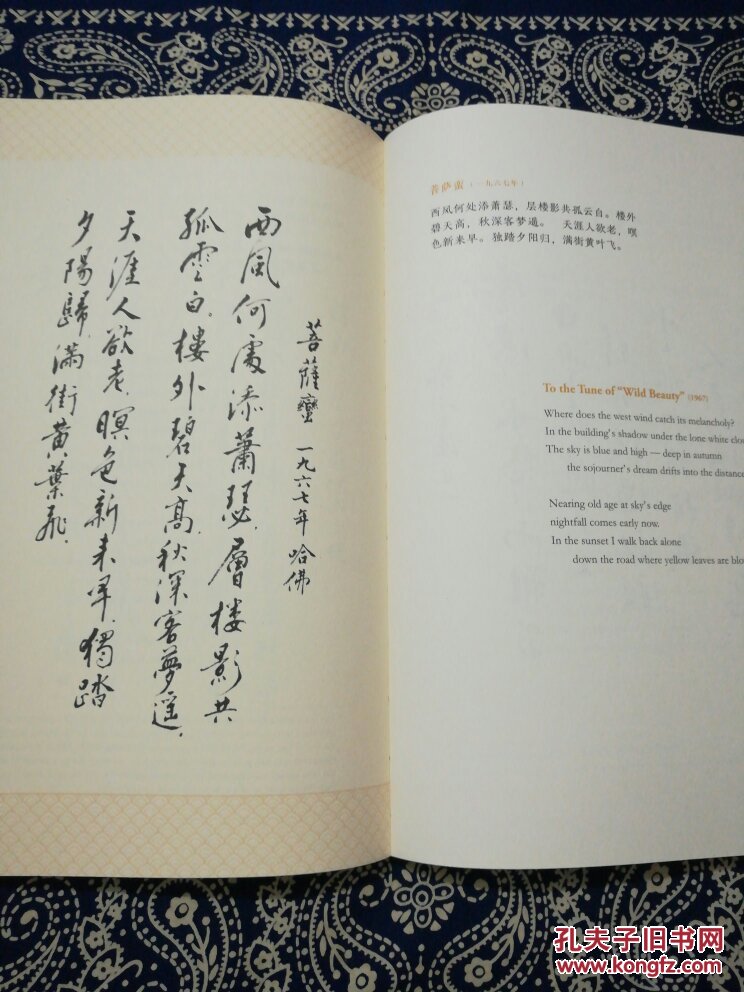 菩薩蠻 一九六七年 哈佛
西風何處添蕭瑟，層樓影共
孤雲白。樓外碧天高，秋深客夢遥。
天涯人欲老，暝色新来早。獨踏
夕陽歸，滿街黄葉飛。
菩萨蛮（一九六七年）
西风何处添萧瑟，层楼影共孤云白。楼外
碧天高，秋深客梦遥。 天涯人欲老，暝
色新来早。独踏夕阳归，满街黄叶飞。
To the Tune of “Wild Beauty” (1967)
Where does the west wind catch its melancholy?
In the building’s shadow under the lone white clou
The sky is blue and high — deep in autumn
the sojourner’s dream drifts into the distance
Nearing old age at sky’s edge
nightfall comes early now.
In the sunset I walk back alone
down the road where yellow leaves are blo
孔夫子旧书网
www.kongfz.com